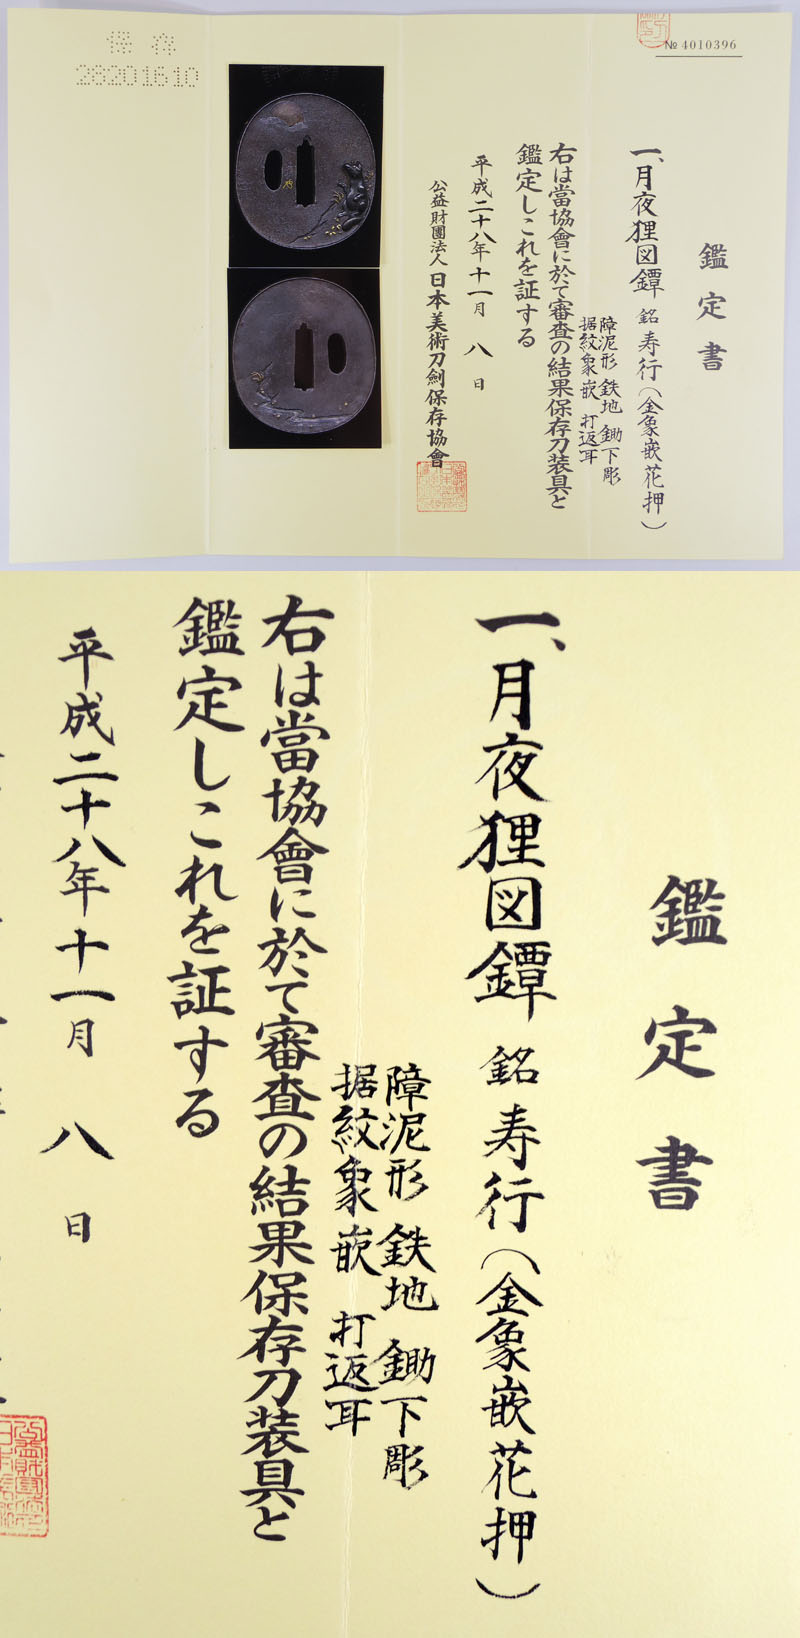 保存
28201610
№ 4010396
鑑定書
一、月夜狸図鐔 銘 寿行(金象嵌花押)
障泥形 鉄地 鋤下彫
据紋象嵌 打返耳
右は當協會に於て審査の結果保存刀装具と
鑑定しこれを証する
平成二十八年十一月 八 日
公益財團法人 日本美術刀劍保存協會
鑑定書
一、月夜狸図鐔 銘 寿行(金象嵌花押)
障泥形 鉄地 鋤下彫
据紋象嵌 打返耳
右は當協會に於て審査の結果保存刀装具と
鑑定しこれを証する
平成二十八年十一月 八 日